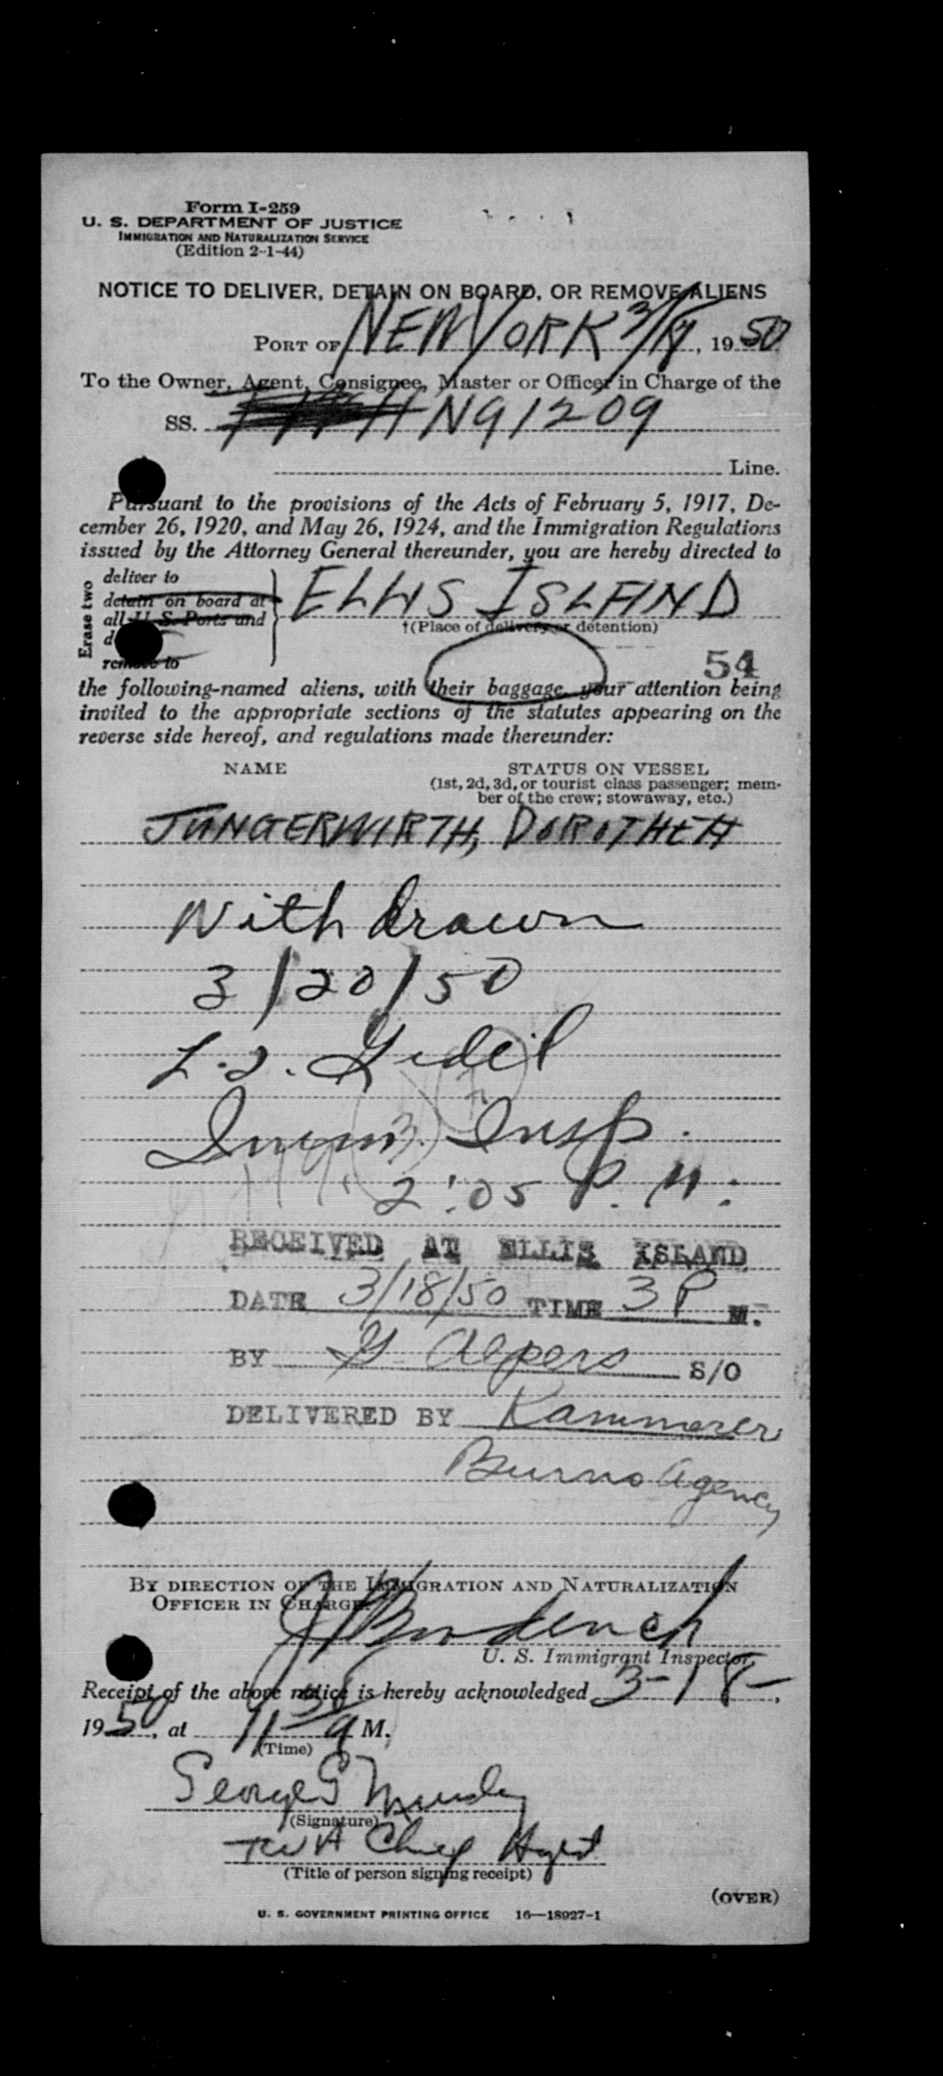 Form I-259
U. S. DEPARTMENT OF JUSTICE
IMMIGRATION AND NATURALIZATION SERVICE
(Edition 2-1-44)
NOTICE TO DELIVER, DETAIN ON BOARD, OR REMOVE ALIENS
PORT OF NEW YORK 3/18, 1950
To the Owner, Agent, Consignee, Master or Officer in Charge of the
SS. N91209
Line.
Pursuant to the provisions of the Acts of February 5, 1917, De-
cember 26, 1920, and May 26, 1924, and the Immigration Regulations
issued by the Attorney General thereunder, you are hereby directed to
Erase two
deliver to
detain on board at
all U. S. Ports and
remove to
ELLIS ISLAND
†(Place of delivery or detention)
54
the following-named aliens, with their baggage, your attention being
invited to the appropriate sections of the statutes appearing on the
reverse side hereof, and regulations made thereunder:
NAME STATUS ON VESSEL
(1st, 2d, 3d, or tourist class passenger; mem-
ber of the crew; stowaway, etc.)
JUNGERWIRTH, DOROTHEA
Withdrawn
3/20/50
Immi. Insp.
2:05 P. M.
RECEIVED AT ELLIS ISLAND
DATE 3/18/50 TIME 3 P M.
BY G Alpers S/O
DELIVERED BY Kammerer
Burns Agency
BY DIRECTION OF THE IMMIGRATION AND NATURALIZATION
OFFICER IN CHARGE:
U. S. Immigrant Inspector.
Receipt of the above notice is hereby acknowledged 3-18-,
1950, at 11 30 A M.
(Time)
George
(Signature)
TWA Chief Agent
(Title of person signing receipt)
(OVER)
U. S. GOVERNMENT PRINTING OFFICE 16—18927-1